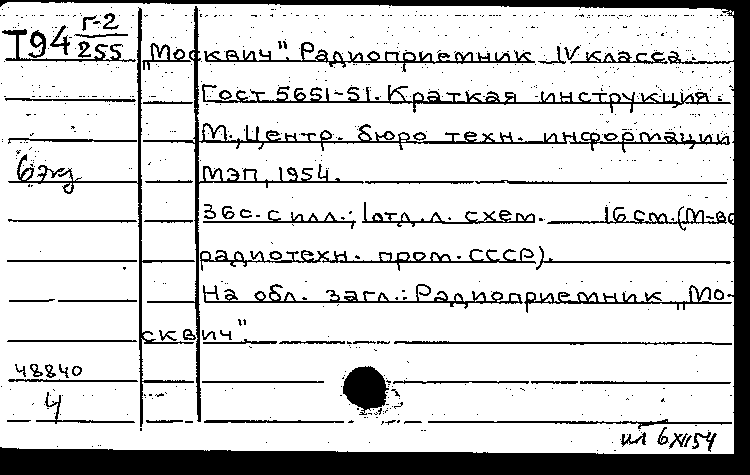 Т94 Г-2/255
„Москвич". Радиоприемник IV класса.
Гост 5651-51. Краткая инструкция.
М., Центр. бюро техн. информации
6 экз
МЭП, 1954.
36 с. с илл.; 1 отд. л. схем. 16 см. (М-во
радиотехн. пром. СССР).
На обл. загл.: Радиоприемник „Мо-
сквич".
48840
4
6 XII 54